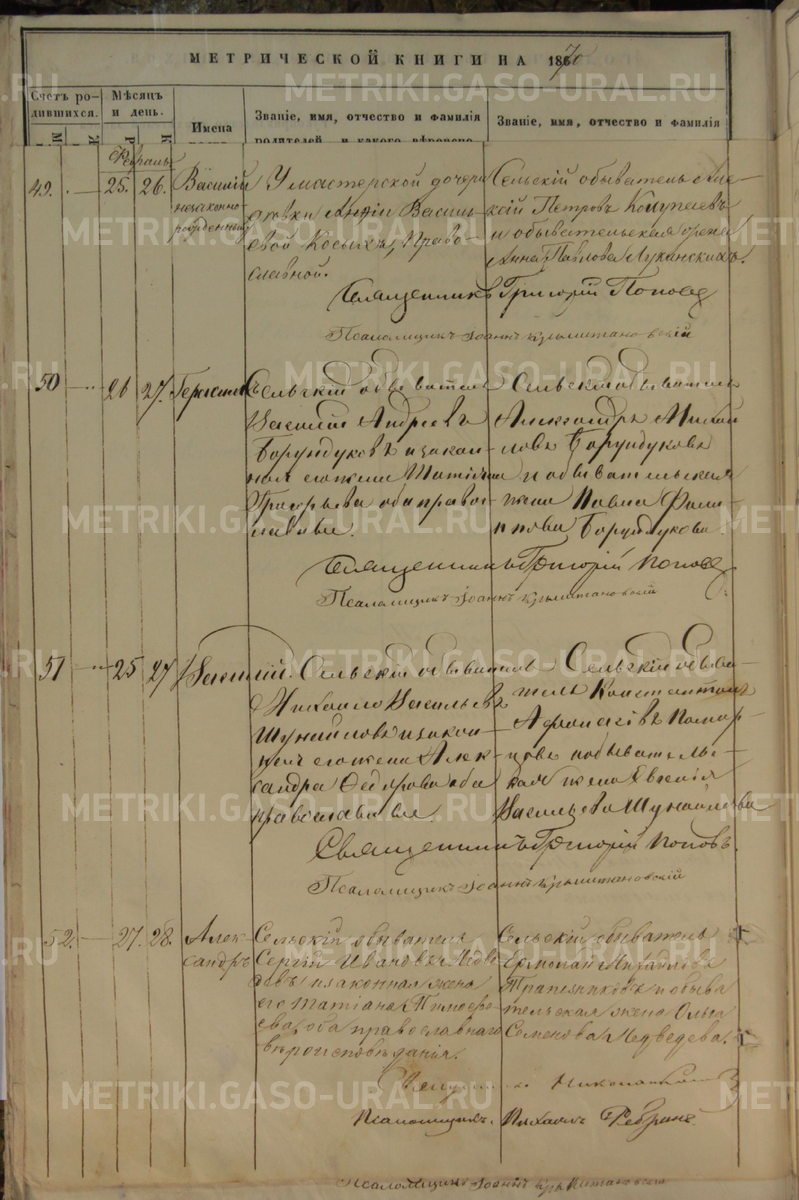 МЕТРИЧЕСКОЙ КНИГИ НА 1870
Счетъ ро-
дившихся.
Мѣсяцъ
и день.
Имена
Званіе, имя, отчество и фамилія
родителей, и какого вѣроиспо
Званіе, имя, отчество и фамилія
М
Ж
Р
К
Февраль
49. 25. 26. Василій
незаконно-
рожденный
У мастерской дочери
дѣвки
Василь-
евой Косыхъ, Право-
славной.
Сельскій обыватель Але-
кѣй Петровъ
и обывательская жена
Анна Павлова Луканскихъ.
Священникъ Григорій Поповъ
Псаломщикъ Іоаннъ
50 26 27. Герасимъ
Сельскій обыватель
Василій Андреевъ
Борундуковъ и закон-
ная его жена Татіана
Григорьева оба право-
славные.
Сельскій обыватель
Александръ Михай-
ловъ Борундуковъ
и обывательская
жена Павла Фили-
ппова Борундукова.
Священникъ Григорій Поповъ
Псаломщикъ Іоаннъ
51 25 27 Василій.
Сельскій обыватель
Михаило Васильевъ
Шунайловъ и закон-
ная его жена Алек-
сандра Федорова оба
православные.
Сельскій обыва-
тель Константинъ
Афанасіевъ
и обыватель-
ская жена Евгенія
Васильева Шунайлова
Священникъ Григорій Поповъ.
Псаломщикъ Іоаннъ
52. 27. 28. Алек-
сандръ
Сельскій обыватель
Сергій Ивановъ Медве-
девъ и законная жена
его Татіана Тимофе-
ева, оба православнаго
вѣроисповѣданія.
Сельскій обыватель
Ермолай Михайловъ
Трапезниковъ и обыва
тельская жена Ольга
Семенова Медведева.
Священникъ
Псаломщикъ
Псаломщикъ Іоаннъ
METRIKI.GASO-URAL.RU